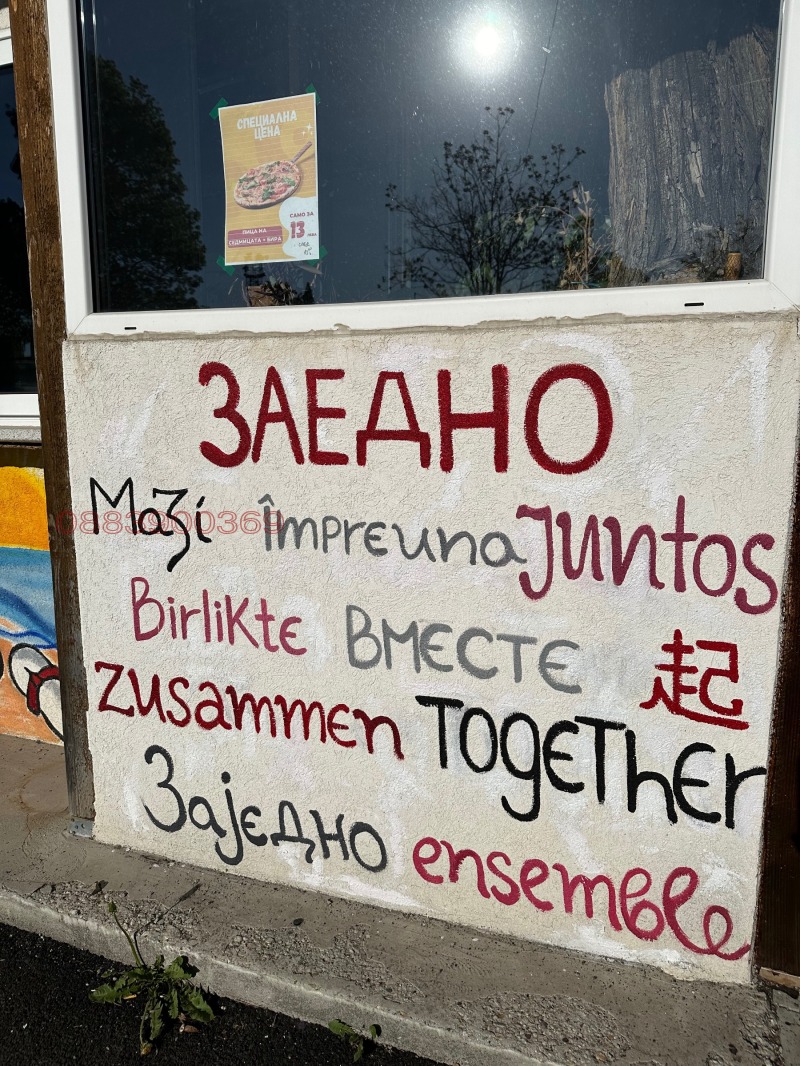 СПЕЦИАЛНА
ЦЕНА
САМО ЗА
13
ПИЦА НА
СЕДМИЦАТА + БИРА
ЗАЕДНО
Mazi Împreuna Juntos
0883900369
Birlikte ВМЕСТЕ 起
zusammen TogeTher
Заједно ensemble